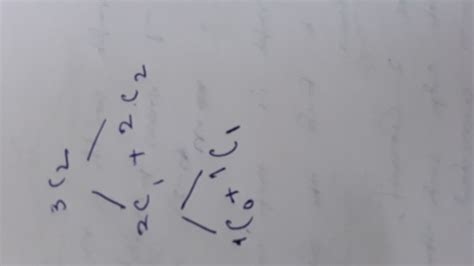 3C₂
2C₁ + 2C₂
1C₀ + 1C₁